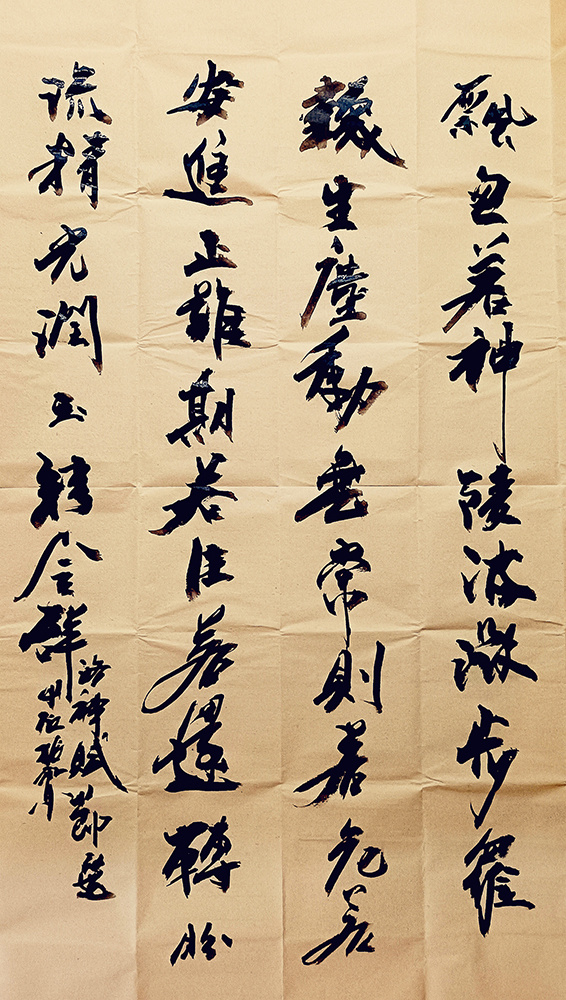 飄忽若神陵波微步羅
韈生塵動無常則若危若
安進止難期若往若還轉盼
流精光潤玉顏含辭
洛神賦節選